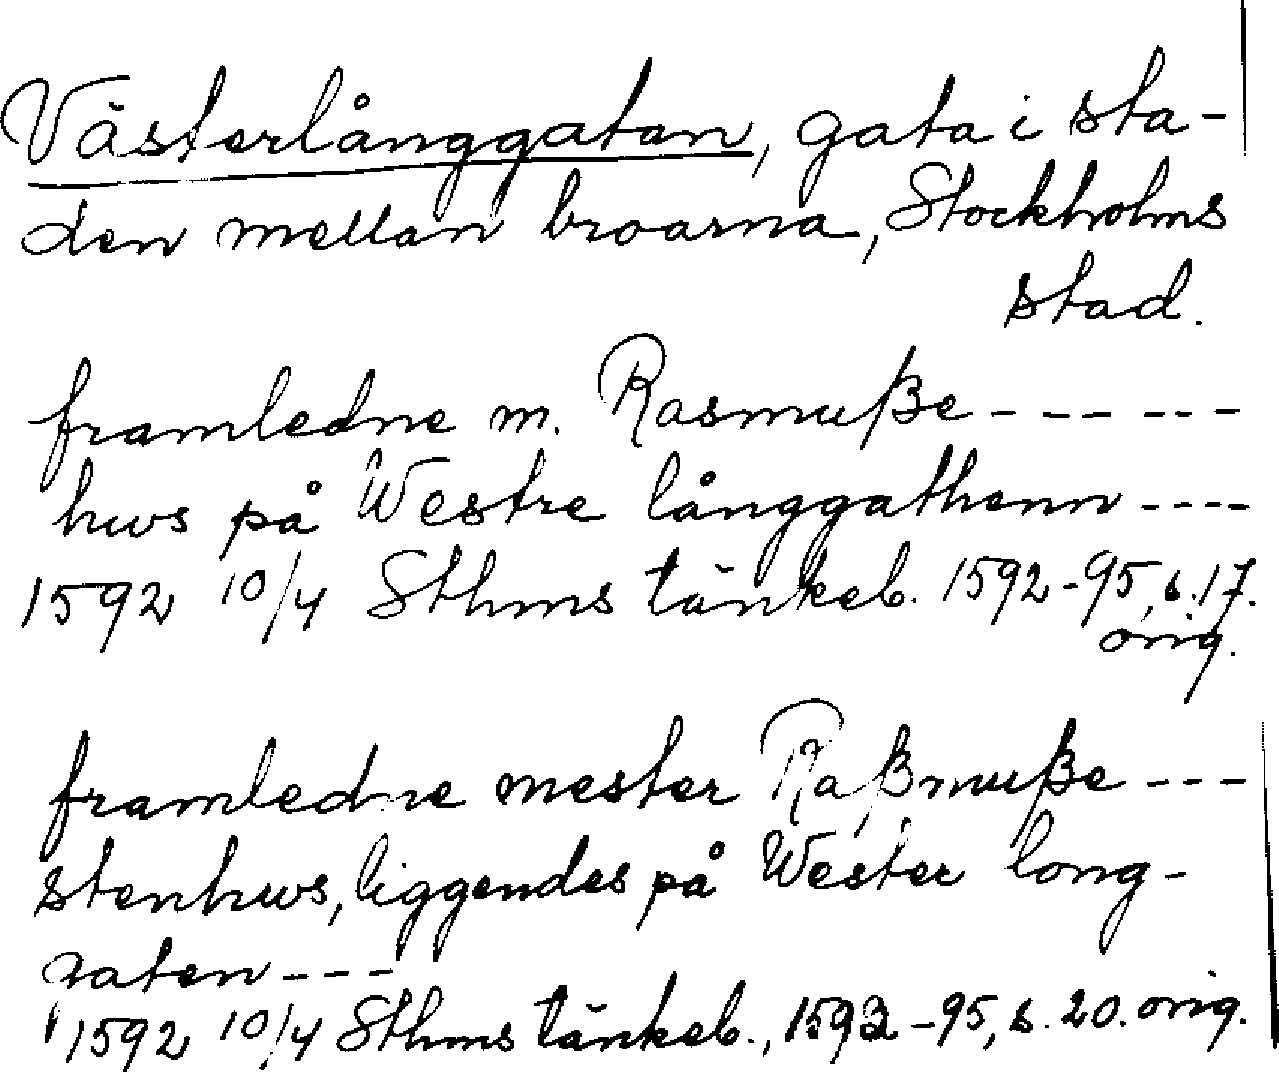 Västerlånggatan, gata i sta-
den mellan broarna, Stockholms
stad.
framledne m. Rasmuße - - - - - -
hws på Westre långgathenn - - - -
1592 10/4 Sthms tänkeb. 1592-95, s. 17.
orig.
framledne mester Raßmuße - - -
stenhws, liggendes på Wester long-
gaten - - -
1592 10/4 Sthms tänkeb., 1592-95, s. 20. orig.